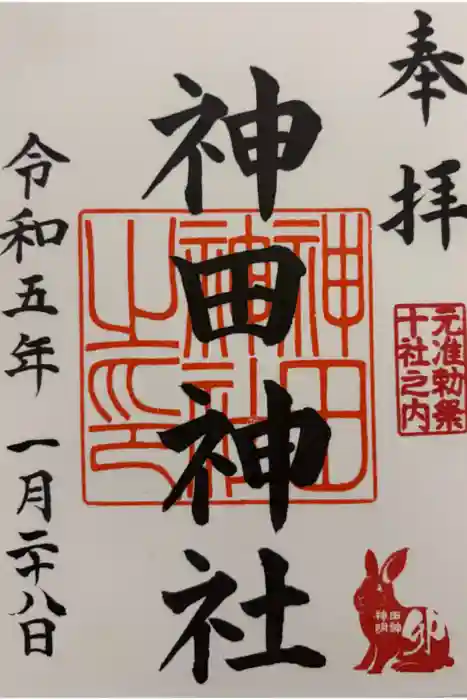 奉拝
元准勅祭
十社之内
神田神社
神田
神社
之印
卯
神田
明神
令和五年 一月二十八日